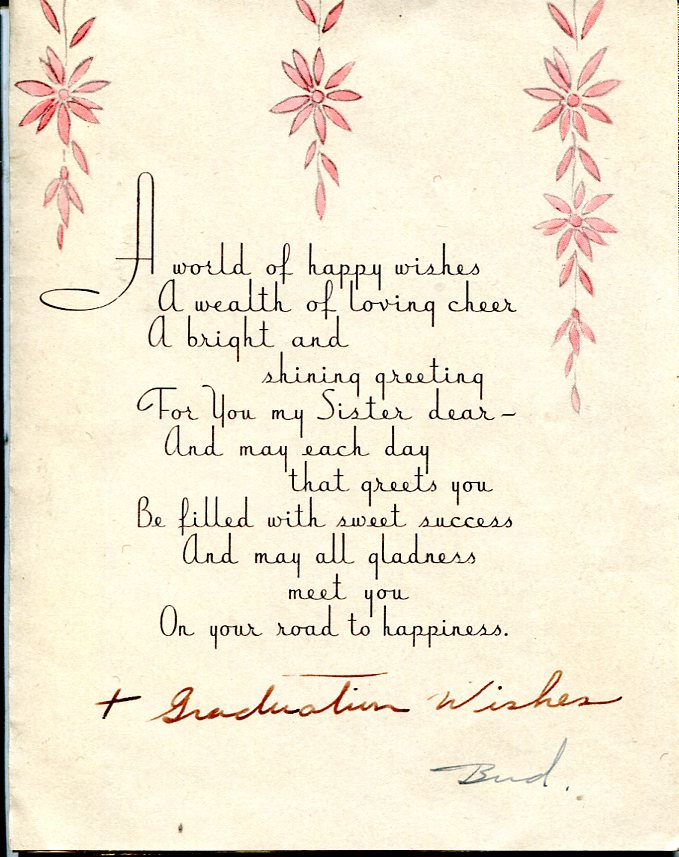 A world of happy wishes
A wealth of loving cheer
A bright and
shining greeting
For You my Sister dear—
And may each day
that greets you
Be filled with sweet success
And may all gladness
meet you
On your road to happiness.
+ Graduation Wishes
Bud.